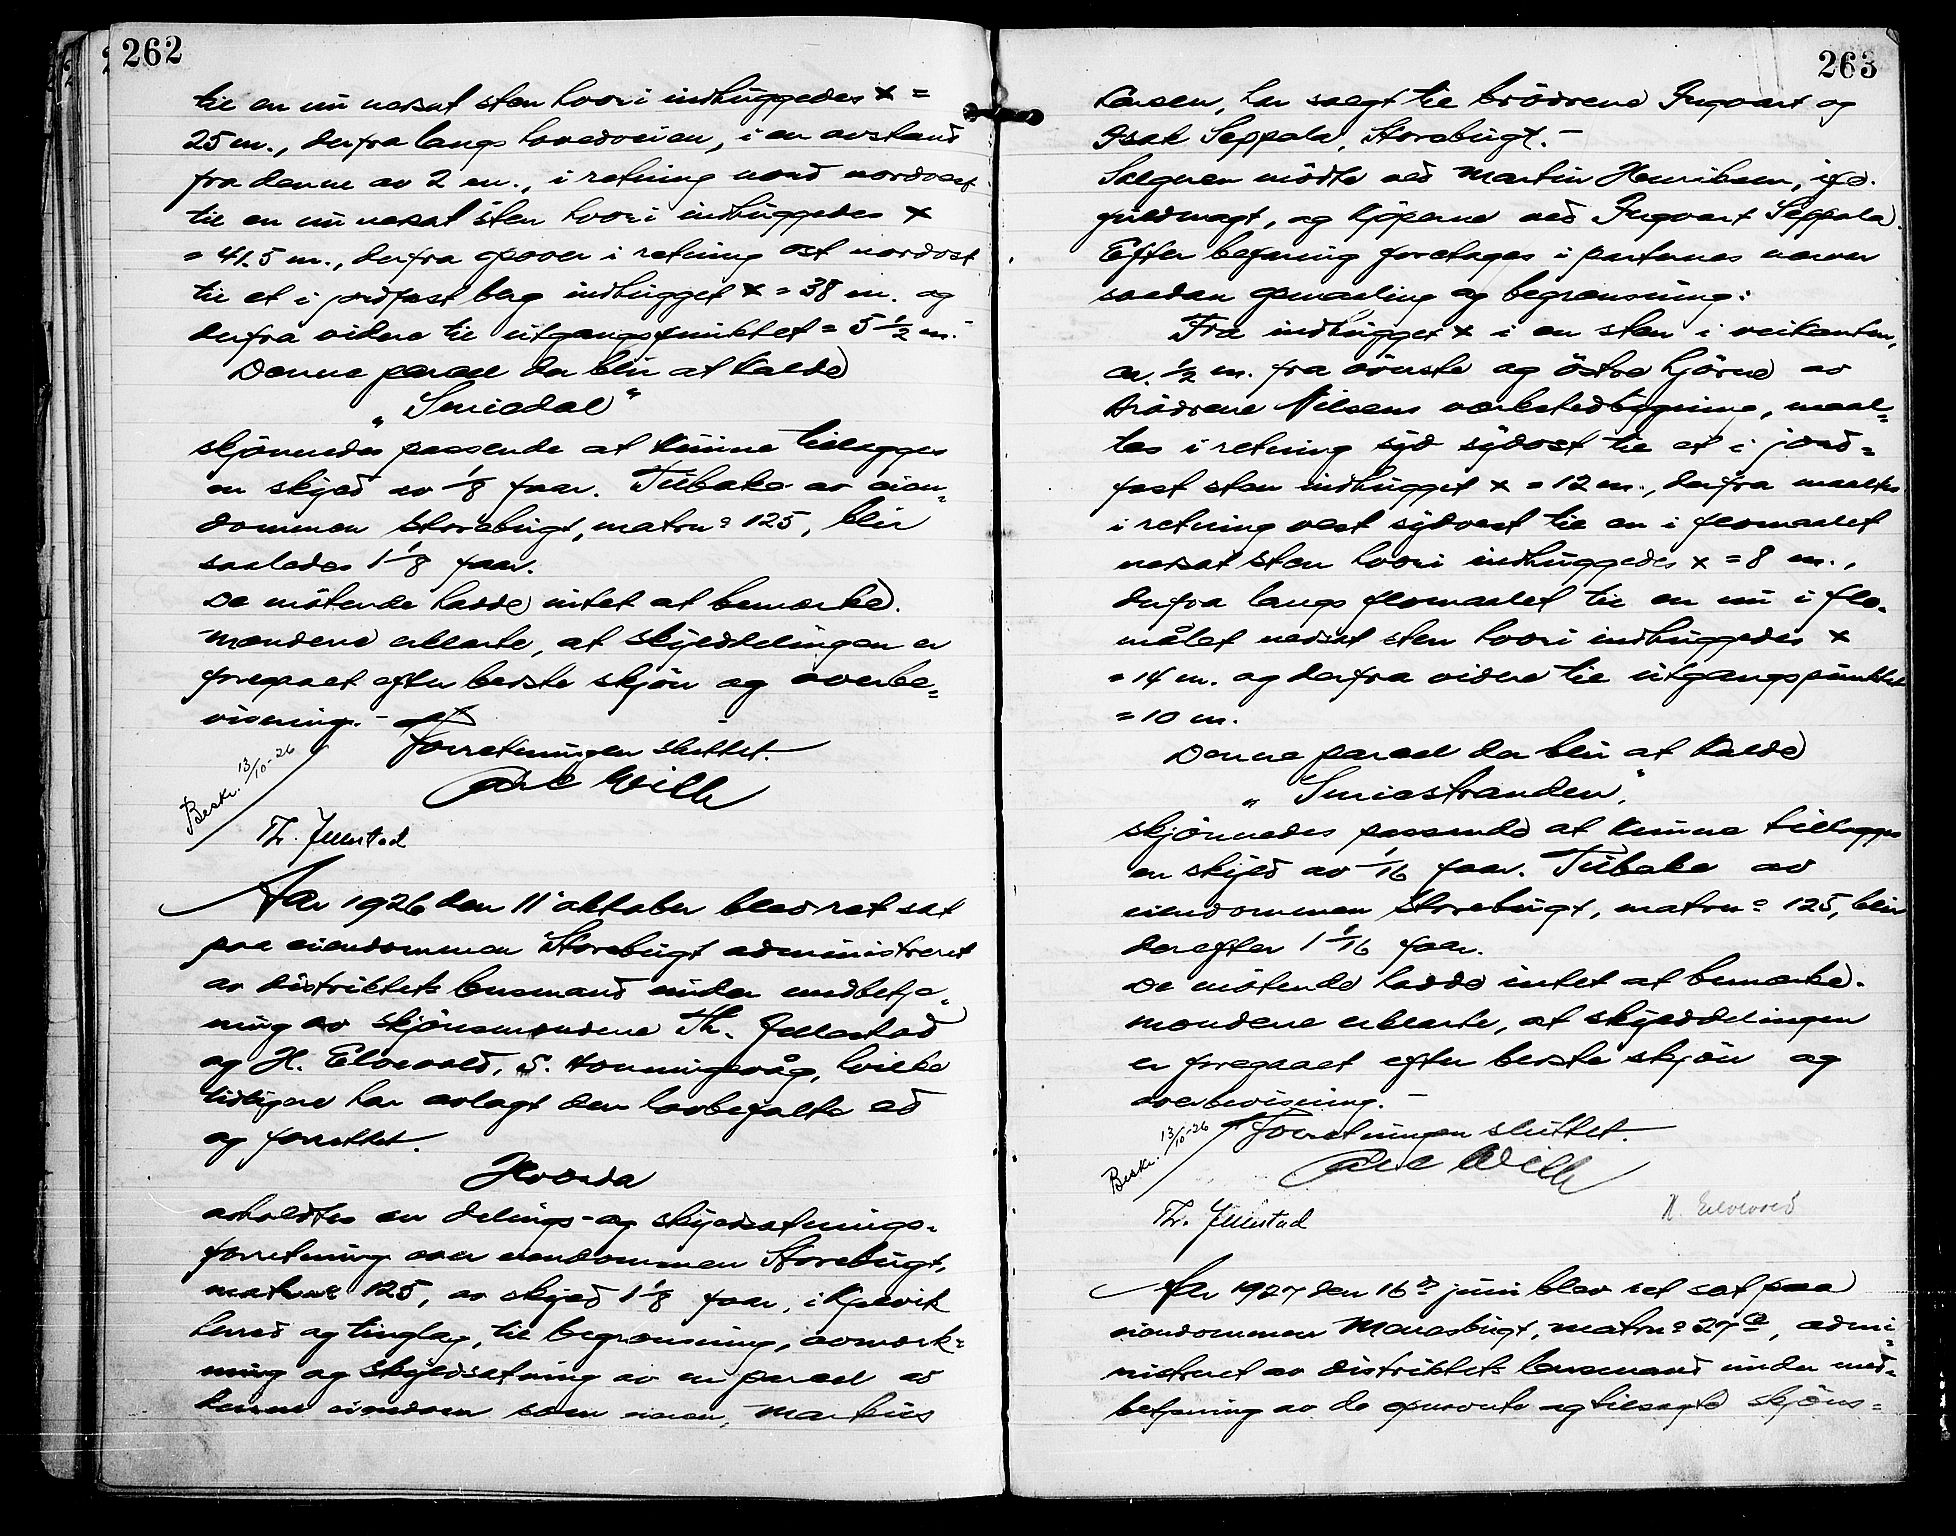 262
til en nu nersat sten hvori indhuggedes x =
25 m., derfra langs hovedveien, i en avstand
fra denne av 2 m., i retning nord nordvest
til en nu nersat sten hvori indhuggedes x
= 41.5 m., derfra opover i retning ost nordost
til et i jordfast berg indhugget x = 38 m. og
derfra videre til utgangspunktet = 5 1/2 m.
Denne parcel der blir at kalde
"Smiedal"
skjønnedes passende at kunne tillægges
en skyld av 1/8 faar. Tilbake av eien-
dommen Storebugt, matrno 125, blir
saaledes 1 1/8 faar.
De møtende hadde intet at bemærke.
Mændene erklærte, at skylddelingen er
foregaaet efter bedste skjøn og overbe-
visning. -
Forretningen sluttet.
Carl Wille
Beskr. 13/10-26
Th. Jellestad
Aar 1926 den 11 oktober blev ret sat
paa eiendommen Storebugt administreret
av distriktets lensmand under medbetje-
ning av skjønsmændene Th. Jellestad
og H. Elvevold, S. Honningsvåg, hvilke
tidligere har avlagt den lovbefalte ed
og forrettet.
Hvorda
avholdtes en delings- og skyldsætnings-
forretning over eiendommen Storebugt,
matrno 125, av skyld 1 1/8 faar, i Kjelvik
herred og tinglag, til begrænsning, avmærk-
ning og skyldsætning av en parcel av
denne eiendom som eieren, Markus
263
Larsen, har solgt til brødrene Ingvart og
Isak Seppola, Storebugt. -
Sælgeren mødte ved Martin Henriksen, ifø.
fuldmagt, og kjøperne ved Ingvart Seppola.
Efter befaring foretages i parternes nærver
saadan opmaaling og begrænsning:
Fra indhugget x i en sten i veikanten,
ca. 1/2 m. fra øverste og östre hjørne av
brødrene Nilsens værkstedbygning, maal-
tes i retning syd sydost til et i jord-
fast sten indhugget x = 12 m., derfra maaltes
i retning vest sydvest til en i flomaalet
nersat sten hvori indhuggedes x = 8 m.,
derfra langs flomaalet til en nu i flo-
målet nersat sten hvori indhuggedes x
= 14 m. og derfra videre til utgangspunktet
= 10 m.
Denne parcel der blir at kalde
"Smiestranden",
skjønnedes passende at kunne tillægges
en skyld av 1/16 faar. Tilbake av
eiendommen Storebugt, matrno 125, blir
derefter 1 1/16 faar.
De møtende hadde intet at bemærke.
Mændene erklærte, at skylddelingen
er foregaaet efter bedste skjøn og
overbevisning. -
Forretningen sluttet.
Carl Wille
Beskr. 13/10-26
Th. Jellestad
H. Elvevold
Aar 1927 den 16de juni blev ret sat paa
eiendommen Menesbugt, matrno 27a, admi-
nistreret av distriktets lensmand under med-
betjening av de opnævnte og tilsagte skjöns-